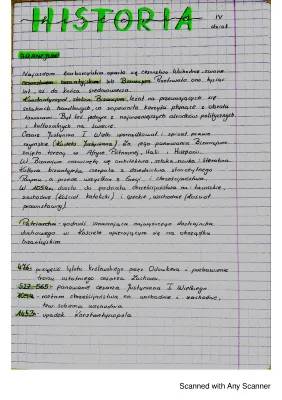 HISTORIA IV
dział
BIZANCJUM
Najazdom barbarzyńskim oparło się cesarstwo Wschodnie zwane
cesarstwem bizantyjskim lub Bizancjum. Przetrwało ono tysiąc
lat, aż do końca średniowiecza.
Konstantynopol, stolica Bizancjum, leżał na przecinających się
szlakach handlowych, co zapewniało korzyści płynące z obrotu
towarami. Był też jednym z najważniejszych ośrodków politycznych
i kulturalnych na świecie.
Cesarz Justynian I Wielki uporządkował i spisał prawo
rzymskie (Kodeks Justyniana). Za jego panowania Bizancjum
zajęło tereny w Afryce Północnej, Italii i Hiszpanii.
W Bizancjum rozwinęły się architektura, sztuka, nauka i literatura.
Kultura bizantyjska czerpała z dziedzictwa starożytnego
Rzymu, a przede wszystkim z Grecji i chrześcijaństwa.
W 1054r. doszło do podziału chrześcijaństwa na: łacińskie,
zachodnie (kościół katolicki) i greckie, wschodnie (kościół
prawosławny).
Patriarcha - godność oznaczająca najwyższego dostojnika
duchownego w kościele opierającym się na obrządku
bizantyjskim
476 - przejęcie tytułu królewskiego przez Odoakra - pozbawienie
tronu ostatniego cesarza Zachodu.
527-565 - panowanie cesarza Justyniana I Wielkiego
1054 - rozłam chrześcijaństwa na wschodnie i zachodnie,
tzw. schizma wschodnia
1453 - upadek Konstantynopola
Scanned with Any Scanner